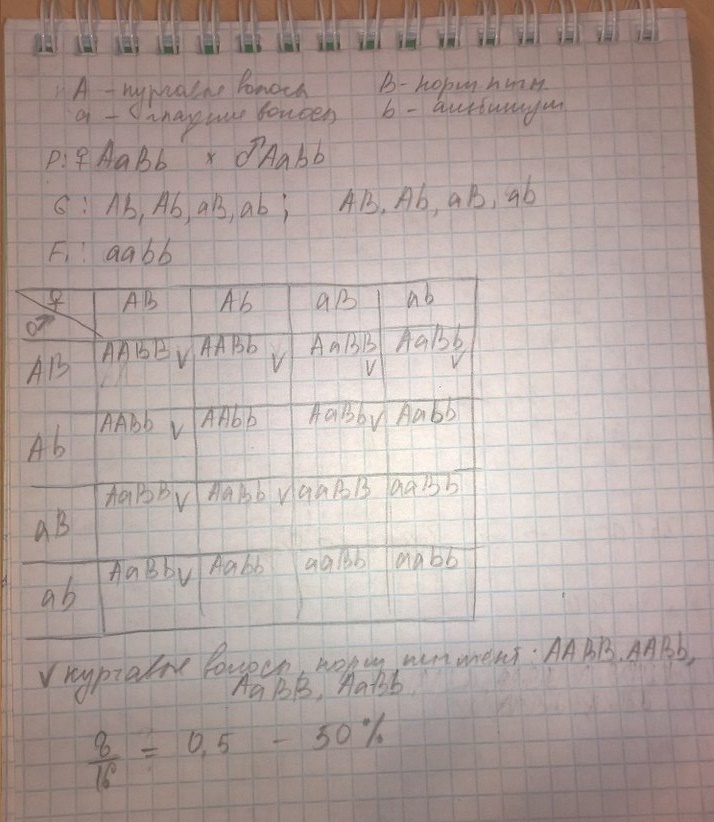 A - курчавые волосы B - норм пигм.
a - гладкие волосы b - альбинизм
P: ♀ AaBb × ♂ AaBb
G: Ab, Ab, aB, ab; AB, Ab, aB, ab
F₁: aabb
♀ ♂ AB Ab aB ab
AB AABB √ AABb √ AaBB √ AaBb √
Ab AABb √ AAbb AaBb √ Aabb
aB AaBB √ AaBb √ aaBB aaBb
ab AaBb √ Aabb aaBb aabb
√ курчавые волосы, норм пигмент: AABB, AABb,
AaBB, AaBb
8/16 = 0,5 - 50%